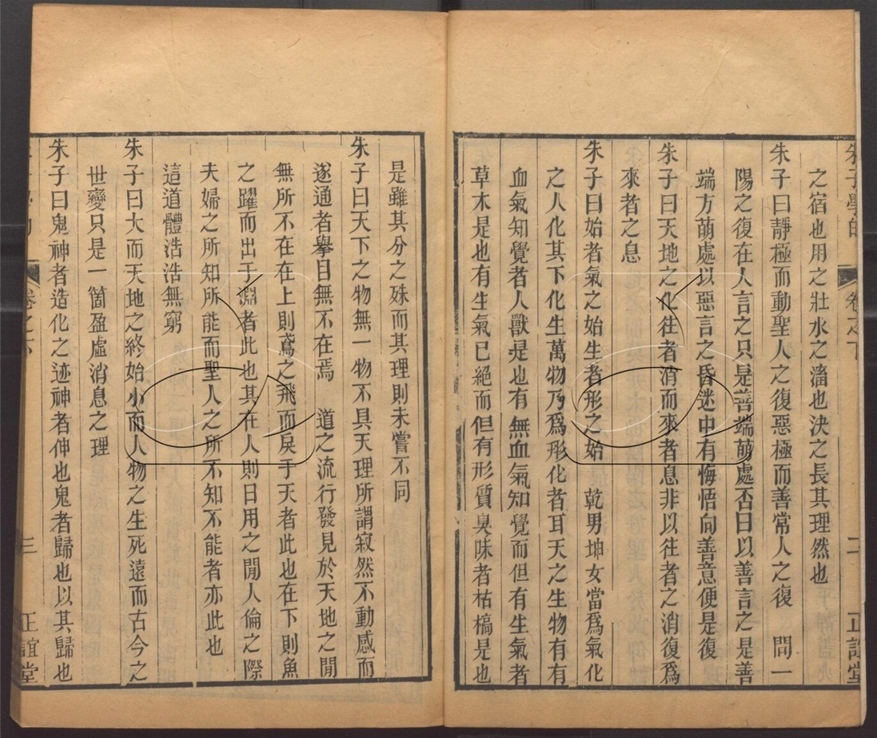 之宿也用之壯水之濇也決之長其理然也
朱子曰靜極而動聖人之復惡極而善常人之復　問一
陽之復在人言之只是善端萌處否曰以善言之是善
端方萌處以惡言之昏迷中有悔悟向善意便是復
朱子曰天地之化往者消而來者息非以往者之消復爲
來者之息
朱子曰始者氣之始生者形之始　乾男坤女當爲氣化
之人化其下化生萬物乃爲形化者耳天之生物有有
血氣知覺者人獸是也有無血氣知覺而但有生氣者
草木是也有生氣已絕而但有形質臭味者枯槁是也
是雖其分之殊而其理則未嘗不同
朱子曰天下之物無一物不具天理所謂寂然不動感而
遂通者舉目無不在焉　道之流行發見於天地之閒
無所不在在上則鳶之飛而戾于天者此也在下則魚
之躍而出于淵者此也其在人則日用之閒人倫之際
夫婦之所知所能而聖人之所不知不能者亦此也
這道體浩浩無窮
朱子曰大而天地之終始小而人物之生死遠而古今之
世變只是一箇盈虛消息之理
朱子曰鬼神者造化之迹神者伸也鬼者歸也以其歸也
卷之下
三
正誼堂